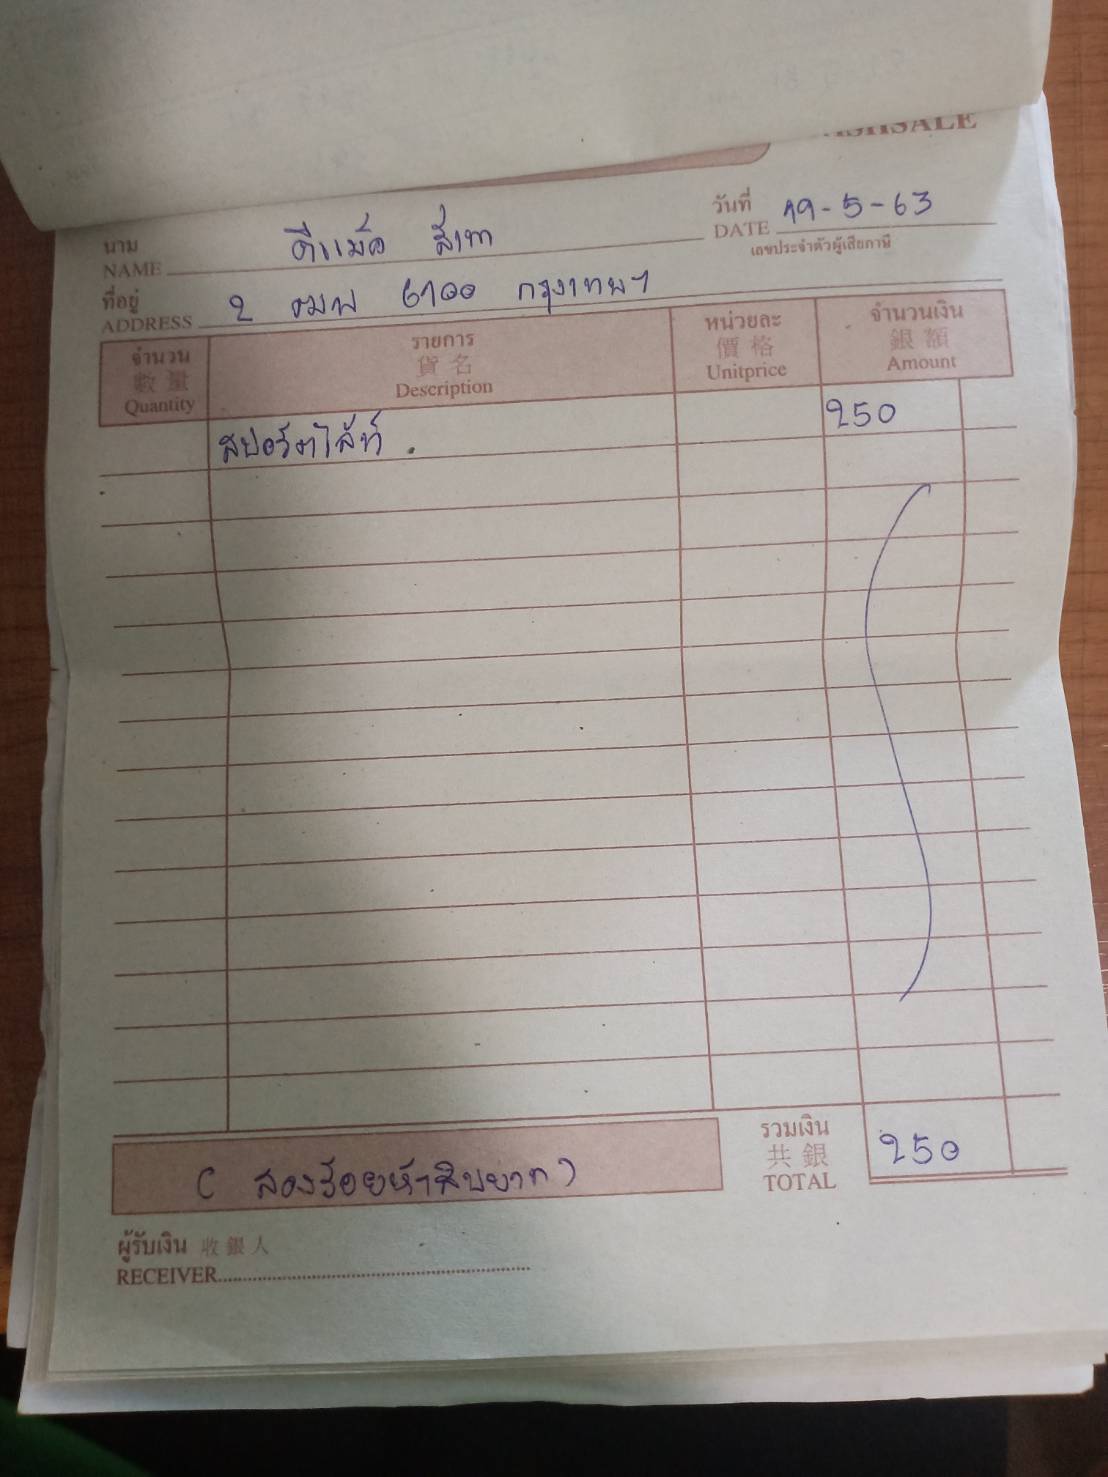 SALE
วันที่
DATE 19-5-63
เลขประจำตัวผู้เสียภาษี
นาม
NAME ดีแม้ค
ที่อยู่
ADDRESS 2 6100 กรุงเทพฯ
จำนวน รายการ หน่วยละ จำนวนเงิน
數量 貨名 價格 銀額
Quantity Description Unitprice Amount
สปอร์ตไล้ท์. 250
รวมเงิน
共銀
TOTAL 250
(สองร้อยห้าสิบบาท)
ผู้รับเงิน 收銀人
RECEIVER